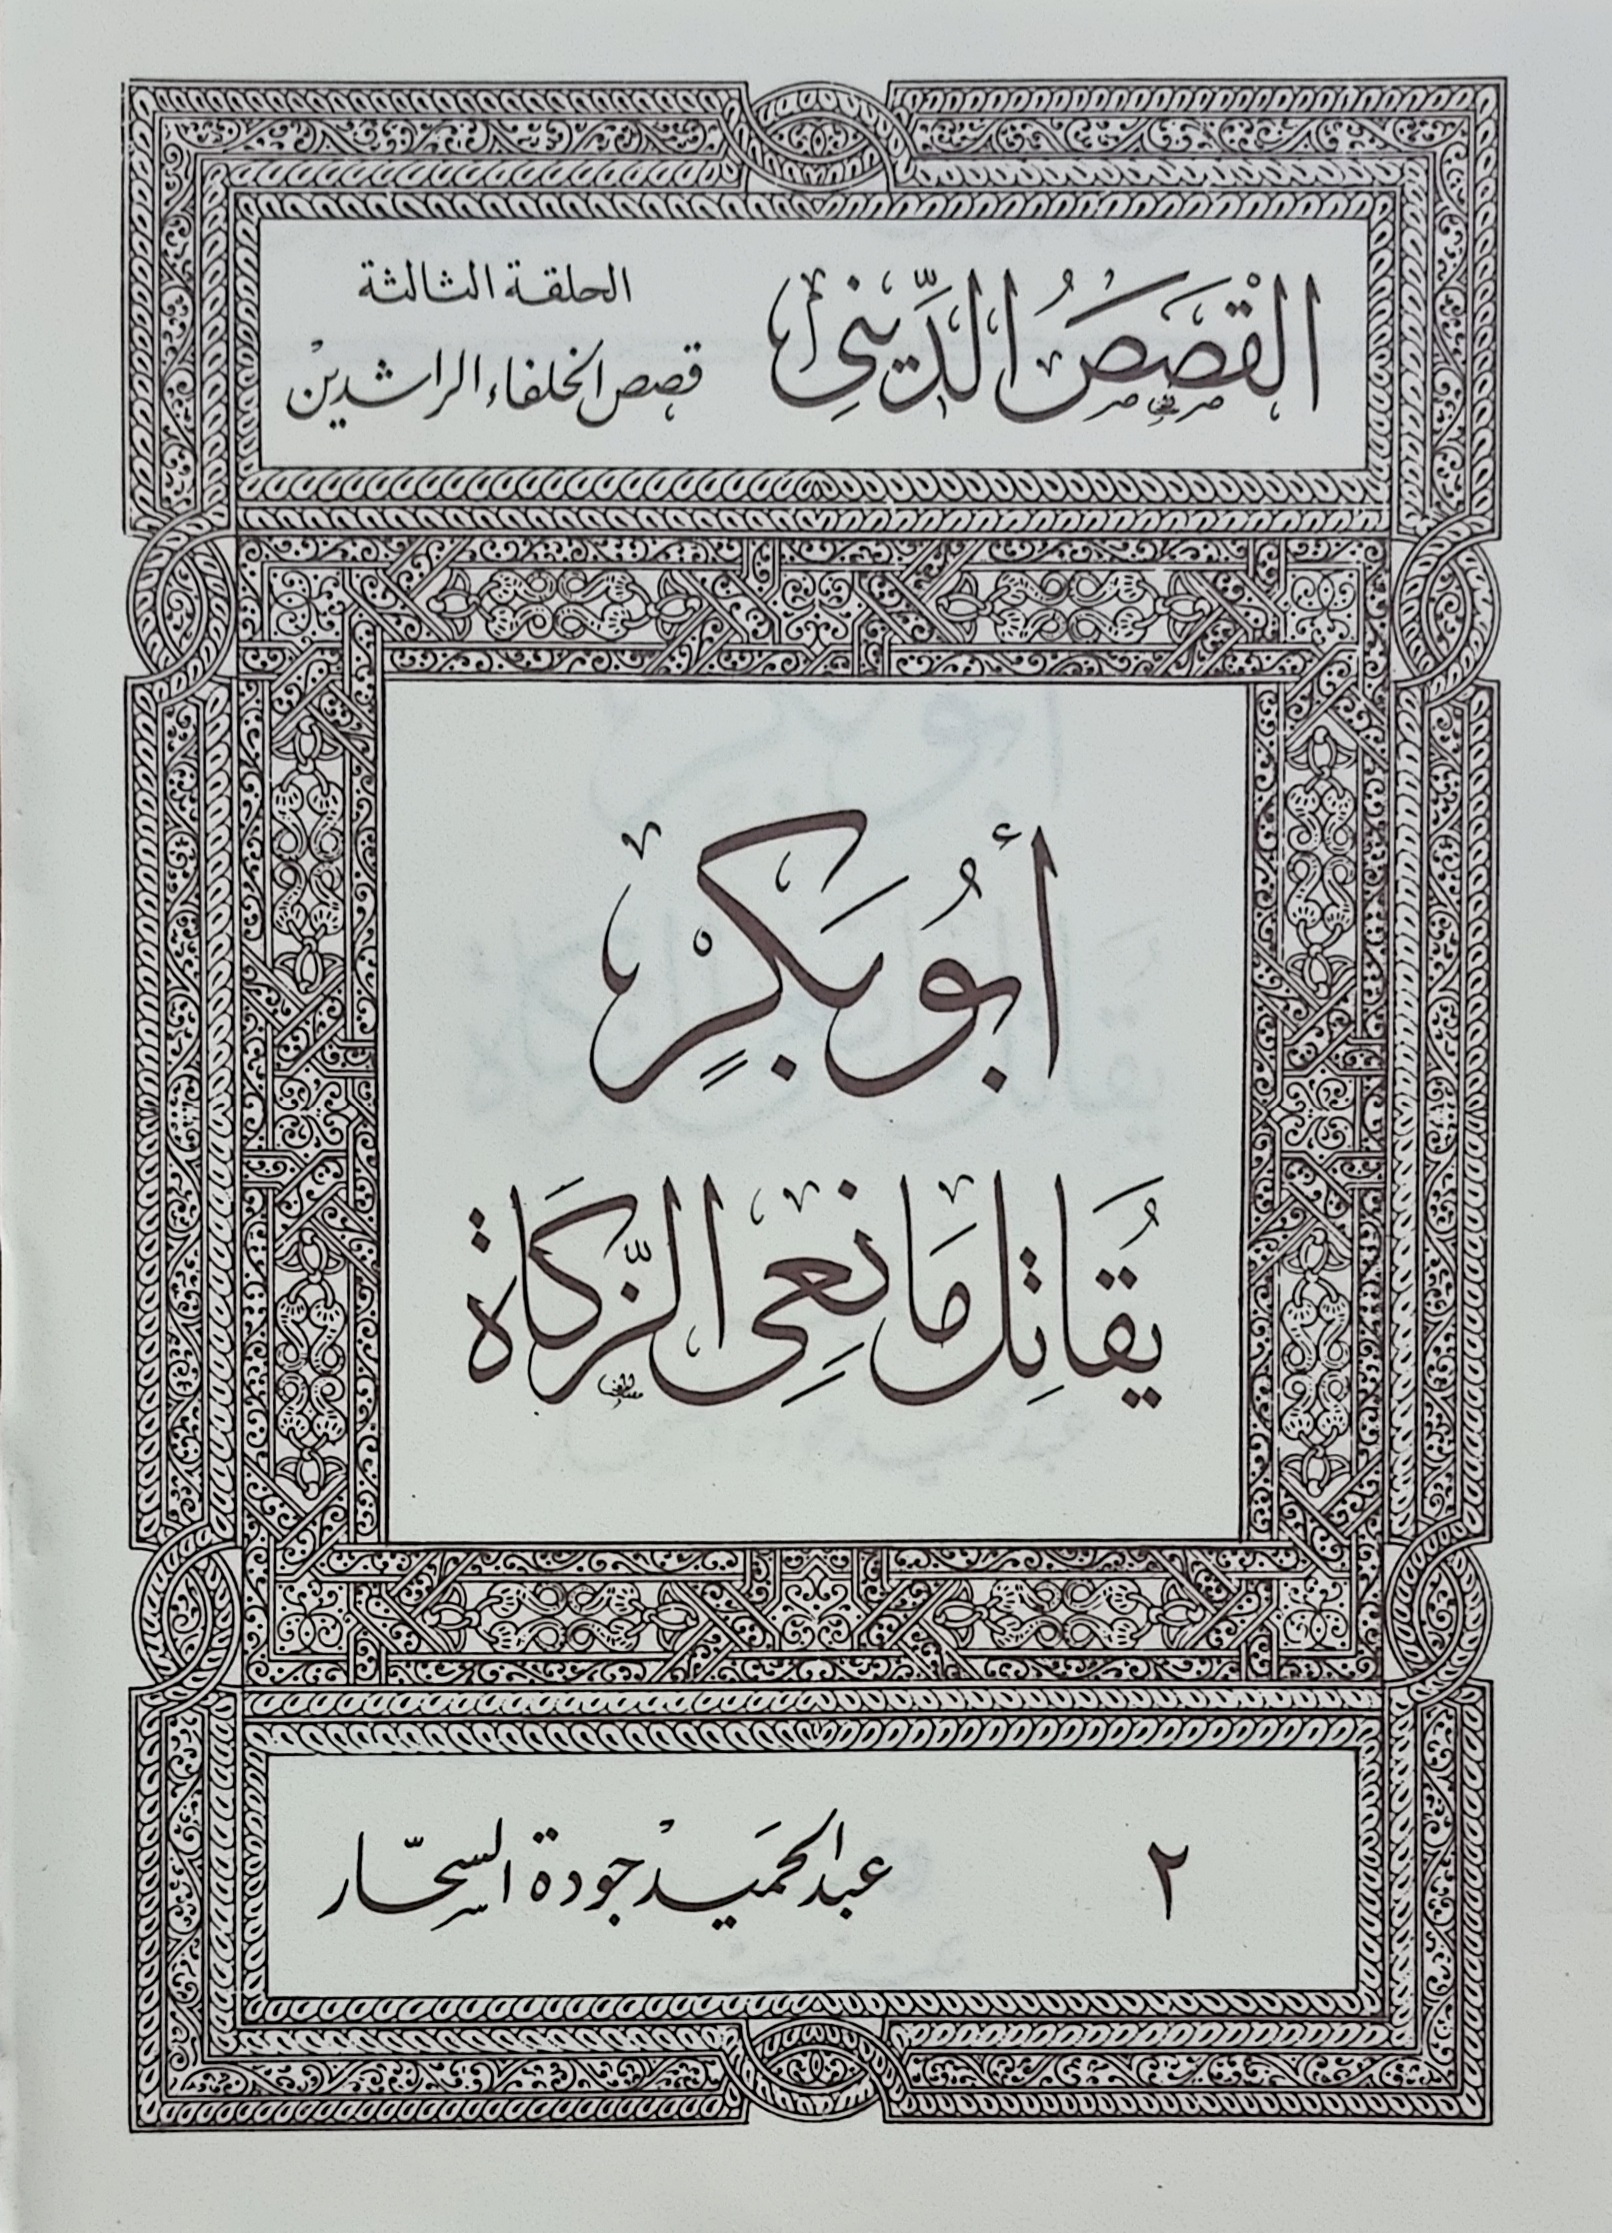 القْصَصُ الدِّينِى
الحلقة الثالثة
قصص الخلفاء الراشدينْ
أبُو بَكرٍ
يُقاتِل مَانِعِى الزَّكَاة
٢
عبد الحَميدْ جودة السحّار